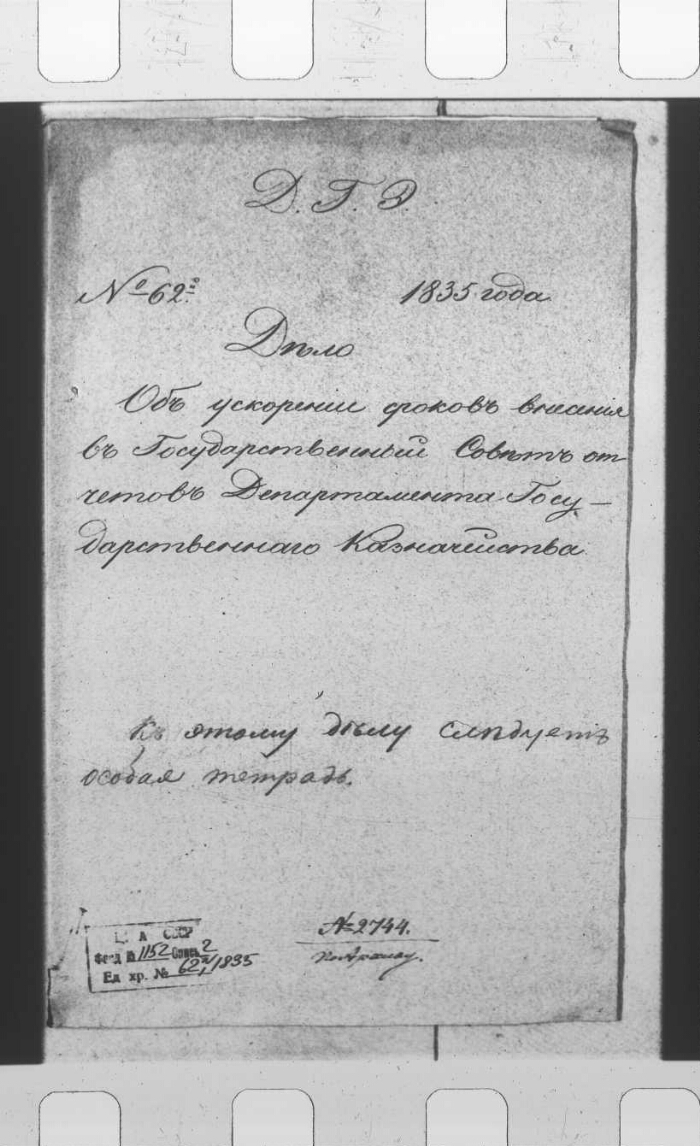 Д. Г. Э.
№ 62й 1835 года
Дѣло
Объ ускореніи сроковъ внесанія
въ Государственный Совѣтъ от
четовъ Департамента Госу-
дарственнаго Казначейства.
Къ этому дѣлу слѣдуетъ
особая тетрадь.
Ц. А СССР
Фонд № 1152 Опись 2
Ед хр. № 62а/1835
№ 2744.
по Архиву.